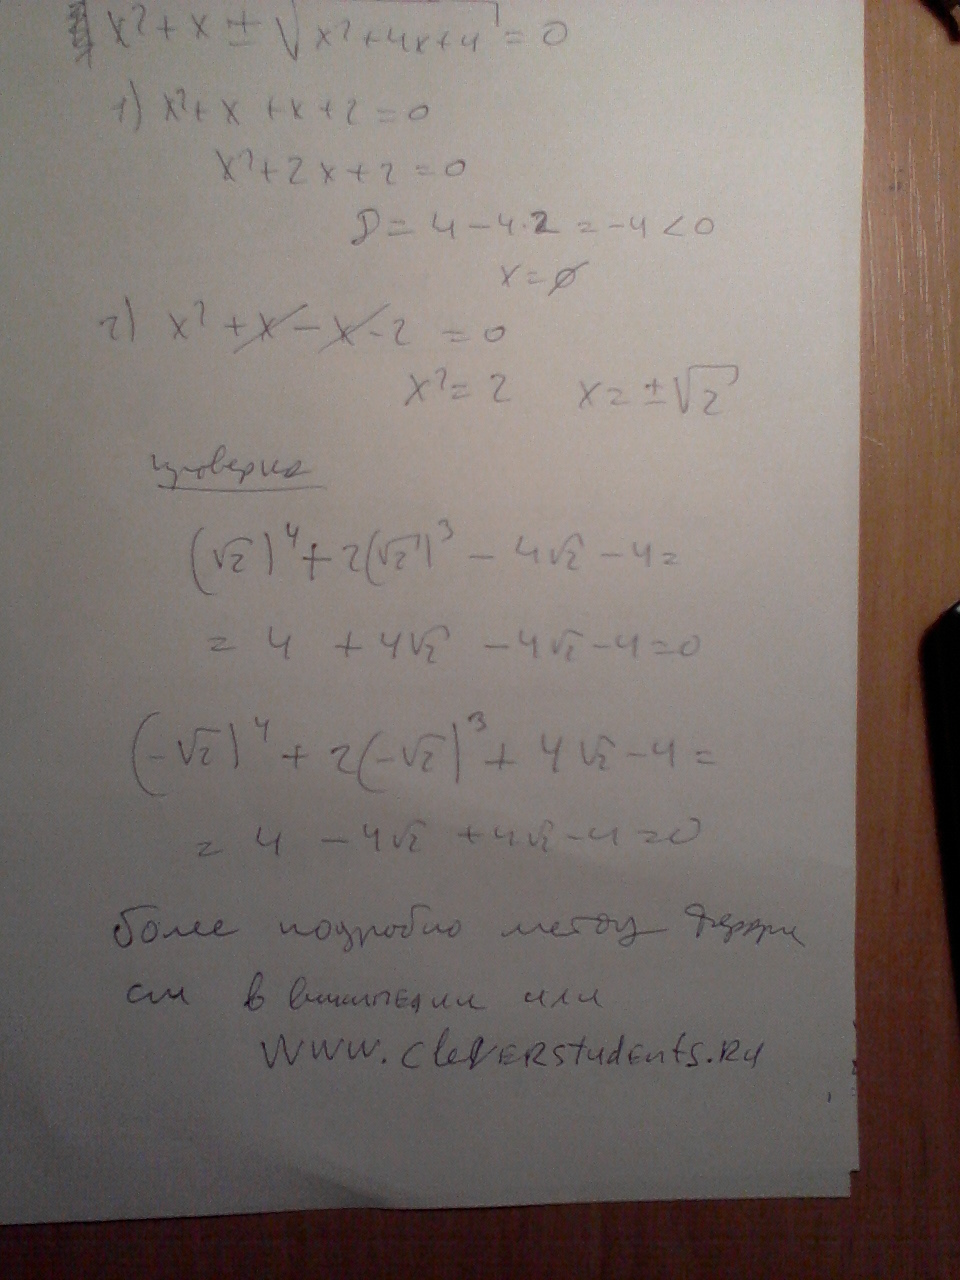 x² + x ± √(x² + 4x + 4) = 0
1) x² + x + x + 2 = 0
x² + 2x + 2 = 0
D = 4 − 4·2 = −4 < 0
x = ∅
2) x² + x − x − 2 = 0
x² = 2 x = ±√2
проверка
(√2)⁴ + 2(√2)³ − 4√2 − 4 =
= 4 + 4√2 − 4√2 − 4 = 0
(−√2)⁴ + 2(−√2)³ + 4√2 − 4 =
= 4 − 4√2 + 4√2 − 4 = 0
более подробно метод Феррари
см в википедии или
www.cleverstudents.ru